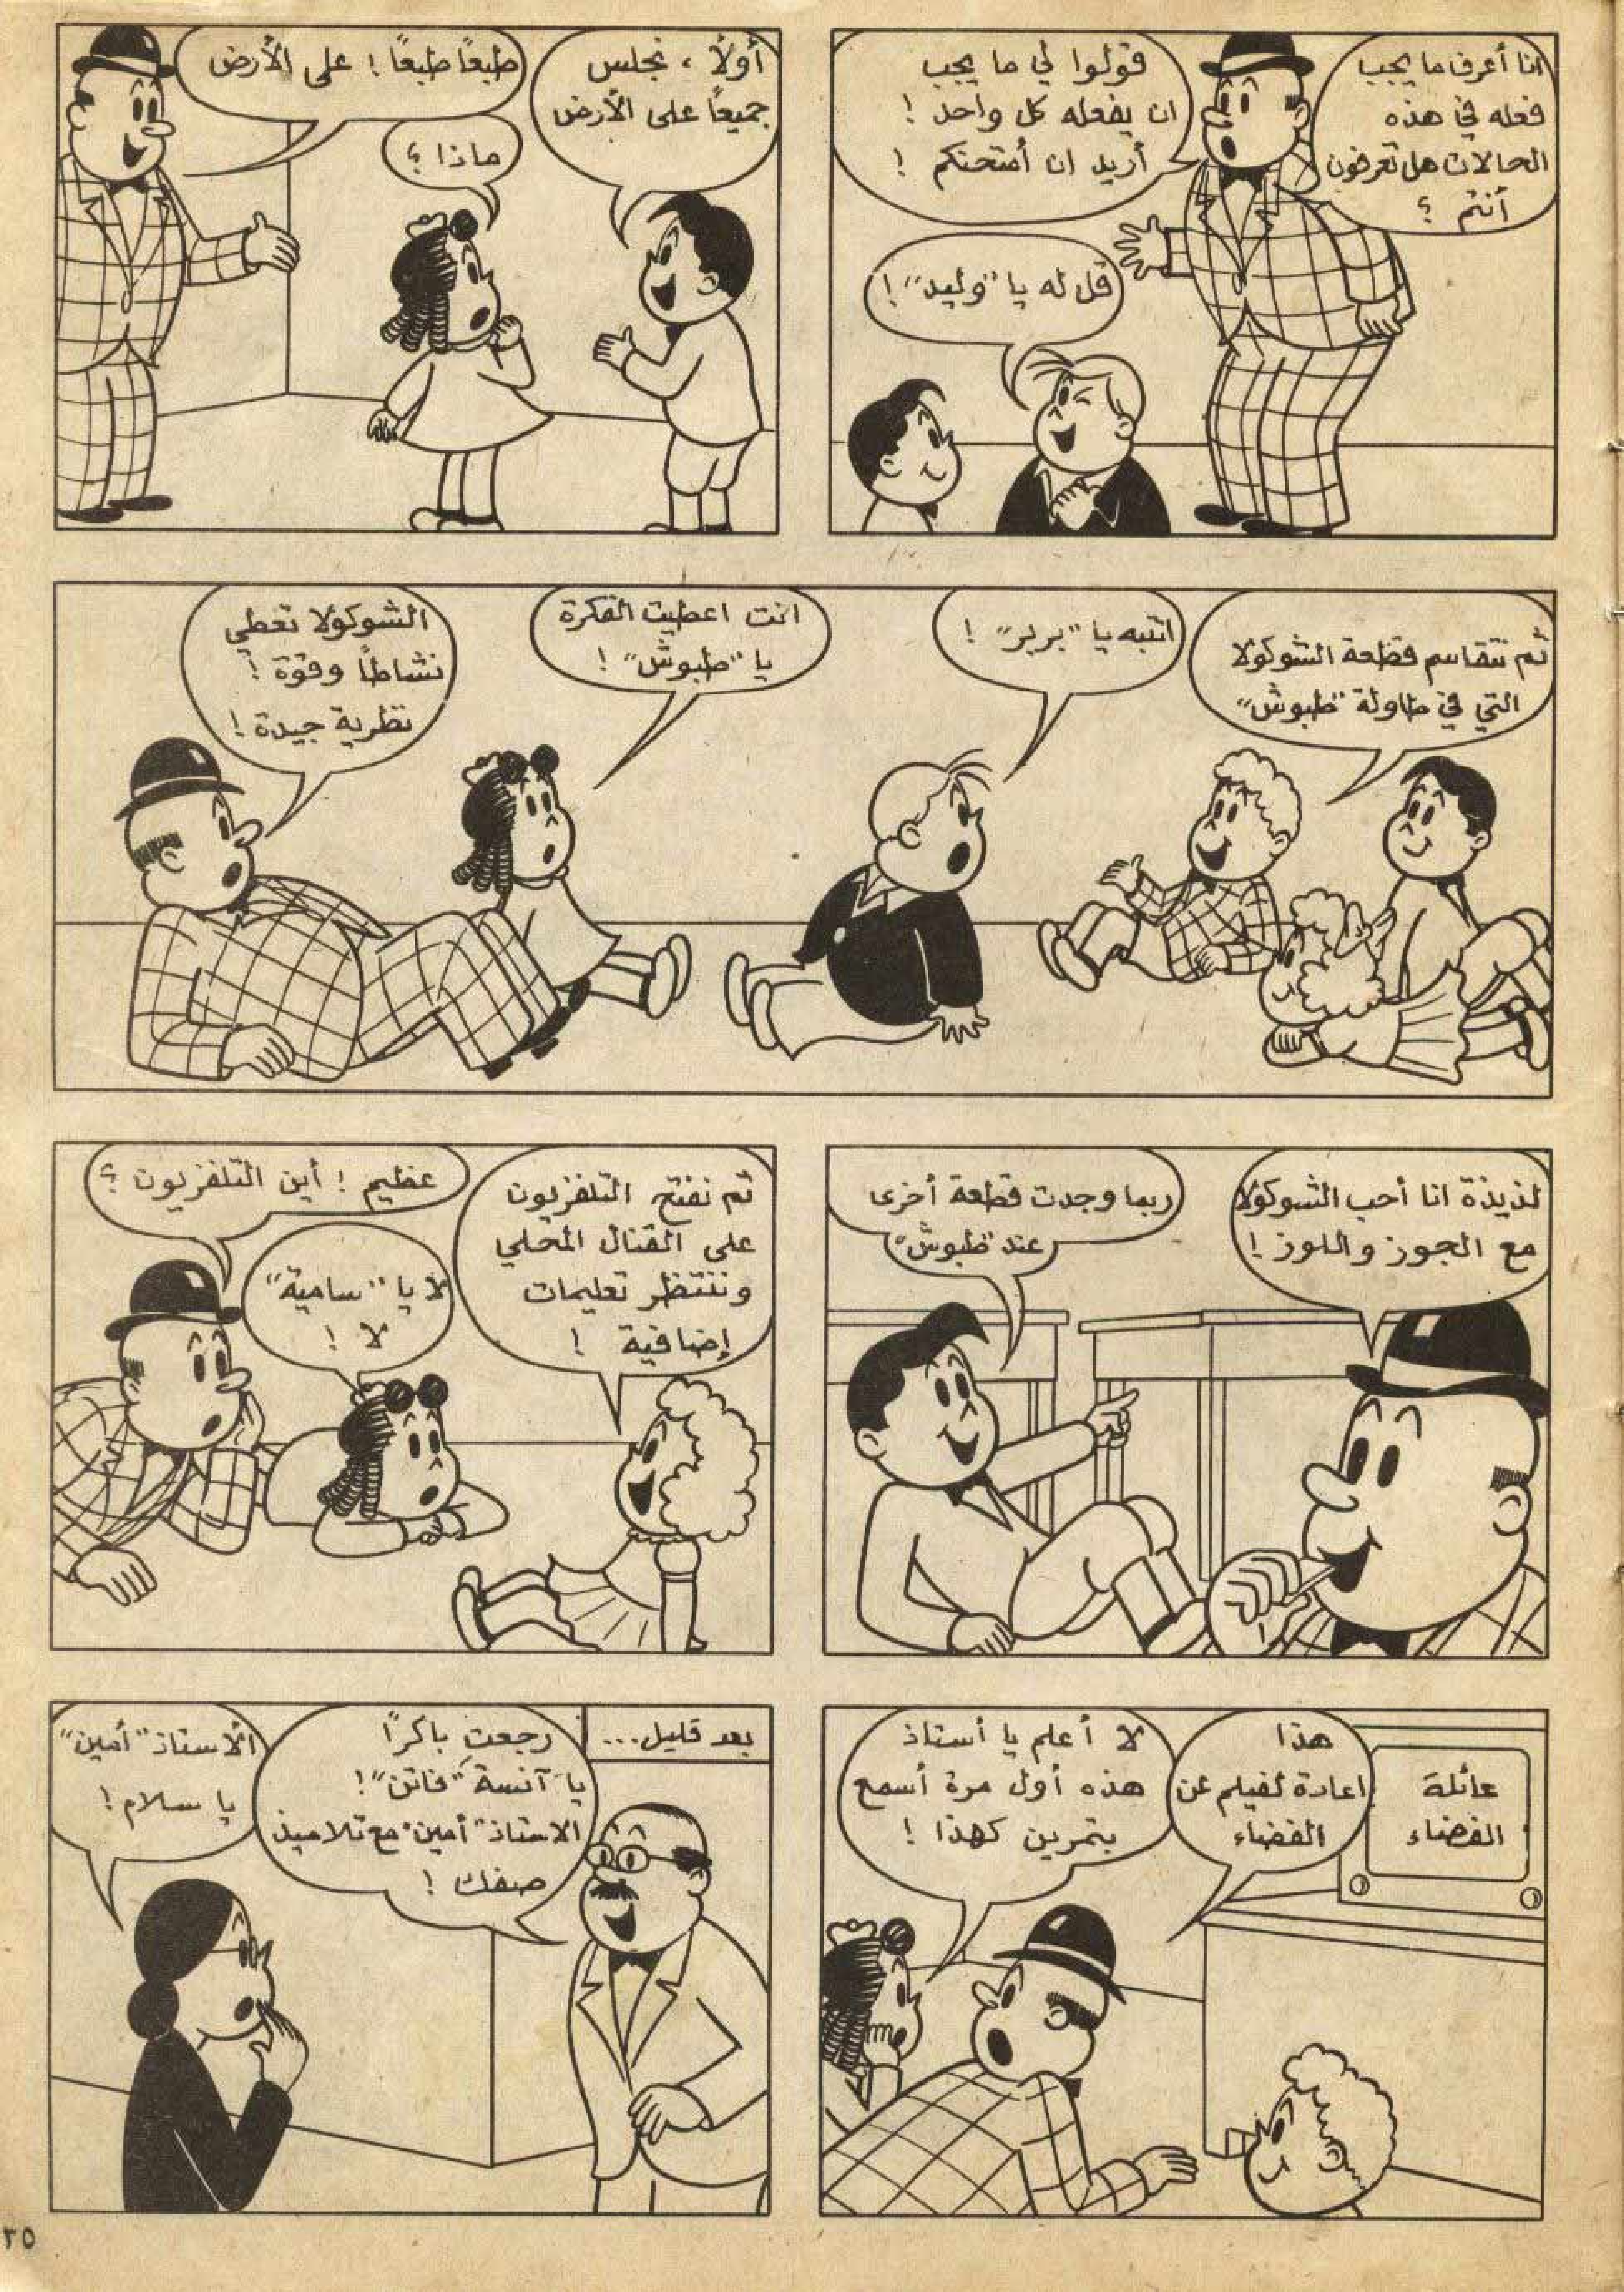 انا أعرف ما يجب
فعله في هذه
الحالات هل تعرفون
أنتم ؟
قولوا لي ما يجب
ان يفعله كل واحد !
أريد ان أمتحنكم !
قل له يا "وليد" !
أولاً ، نجلس
جميعاً على الأرض
ماذا ؟
طبعاً طبعاً ! على الأرض
ثم نتقاسم قطعة الشوكولا
التي في طاولة "طبوش"
انتبه يا "بربر" !
انت اعطيت الفكرة
يا "طبوش" !
الشوكولا تعطي
نشاطاً وقوة !
نظرية جيدة !
لذيذة انا أحب الشوكولا
مع الجوز واللوز !
ربما وجدت قطعة أخرى
عند "طبوش"
ثم نفتح التلفزيون
على القنال المحلي
وننتظر تعليمات
إضافية !
لا يا "سامية"
لا !
عظيم ! أين التلفزيون ؟
عائلة
الفضاء
هذا
اعادة لفيلم عن
الفضاء
لا أعلم يا أستاذ
هذه أول مرة أسمع
بتمرين كهذا !
بعد قليل...
رجعت باكراً
يا آنسة "فاتن" !
الاستاذ "أمين" مع تلاميذ
صفك !
الأستاذ "أمين"
يا سلام !
٣٥